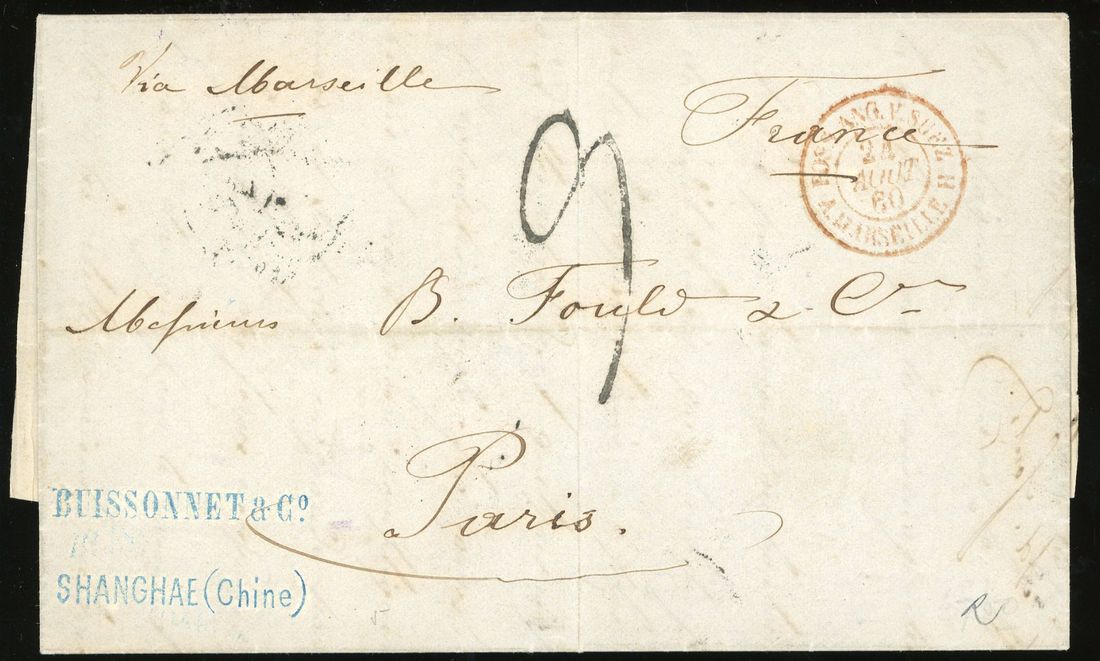 Via Marseille
France
POSS. ANG. V. SUEZ H
24
AOUT
60
A. MARSEILLE
9
Messieurs B. Fould & Cie
Paris.
BUISSONNET & Co.
SHANGHAE (Chine)
R